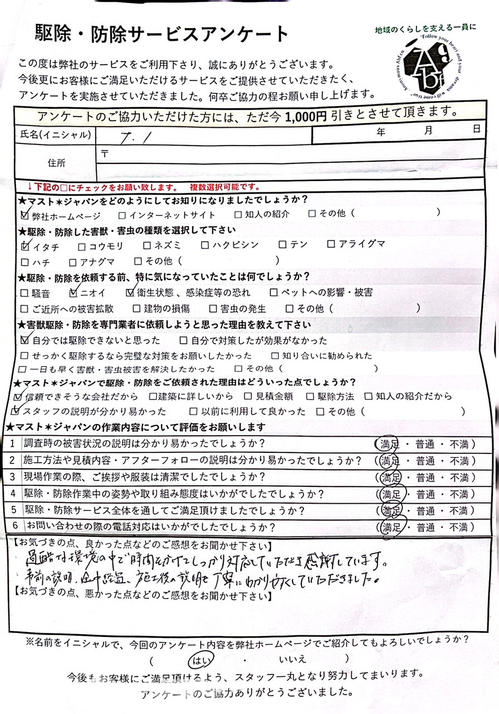 駆除・防除サービスアンケート
地域のくらしを支える一員に
この度は弊社のサービスをご利用下さり、誠にありがとうございます。
今後更にお客さまにご満足いただけるサービスをご提供させていただきたく、
アンケートを実施させていただきました。何卒ご協力の程お願い申し上げます。
アンケートのご協力いただけた方には、ただ今1,000円 引きとさせて頂きます。
氏名(イニシャル) T. I 年 月 日
住所 〒
↓下記の□にチェックをお願い致します。 複数選択可能です。
★マスト✳ジャパンをどのようにしてお知りになりましたでしょうか?
☑弊社ホームページ □インターネットサイト □知人の紹介 □その他( )
★駆除・防除した害獣・害虫の種類を選択して下さい
☑イタチ □コウモリ □ネズミ □ハクビシン □テン □アライグマ
□ハチ □アナグマ □その他( )
★駆除・防除を依頼する前、特に気になっていたことは何でしょうか?
□騒音 ☑ニオイ ☑衛生状態、感染症等の恐れ □ペットへの影響・被害
□ご近所への被害拡散 □建物の損傷 □害虫の発生 □その他( )
★害獣駆除・防除を専門業者に依頼しようと思った理由を教えて下さい
☑自分では駆除できないと思った □自分で対策したが効果がなかった
□せっかく駆除するなら完璧な対策をお願いしたかった □知り合いに勧められた
□一日も早く害獣・害虫被害を解決したかった □その他( )
★マスト✳ジャパンで駆除・防除をご依頼された理由はどういった点でしょうか?
☑信頼できそうな会社だから □建築に詳しいから □見積金額 □駆除方法 □知人の紹介だから
☑スタッフの説明が分かり易かった □以前に利用して良かった □その他( )
★マスト✳ジャパンの作業内容について評価をお願いします
1 調査時の被害状況の説明は分かり易かったでしょうか? (満足・普通・不満)
2 施工方法や見積内容・アフターフォローの説明は分かり易かったでしょうか? (満足・普通・不満)
3 現場作業の際、ご挨拶や服装は清潔でしたでしょうか? (満足・普通・不満)
4 駆除・防除作業中の姿勢や取り組み態度はいかがでしたでしょうか? (満足・普通・不満)
5 駆除・防除サービス全体を通してご満足頂けましたでしょうか? (満足・普通・不満)
6 お問い合わせの際の電話対応はいかがでしたでしょうか? (満足・普通・不満)
【お気づきの点、良かった点などのご感想をお聞かせ下さい】
過酷な環境の中で時間をかけてしっかり対応していただき感謝しています。
事前の説明、施工後の説明も丁寧にわかりやすくしていただきました。
【お気づきの点、悪かった点などのご感想をお聞かせ下さい】
※名前をイニシャルで、今回のアンケート内容を弊社ホームページでご紹介してもよろしいでしょうか?
( はい ・ いいえ )
今後もお客様にご満足頂けるよう、スタッフ一丸となり努力してまいります。
アンケートのご協力ありがとうございました。